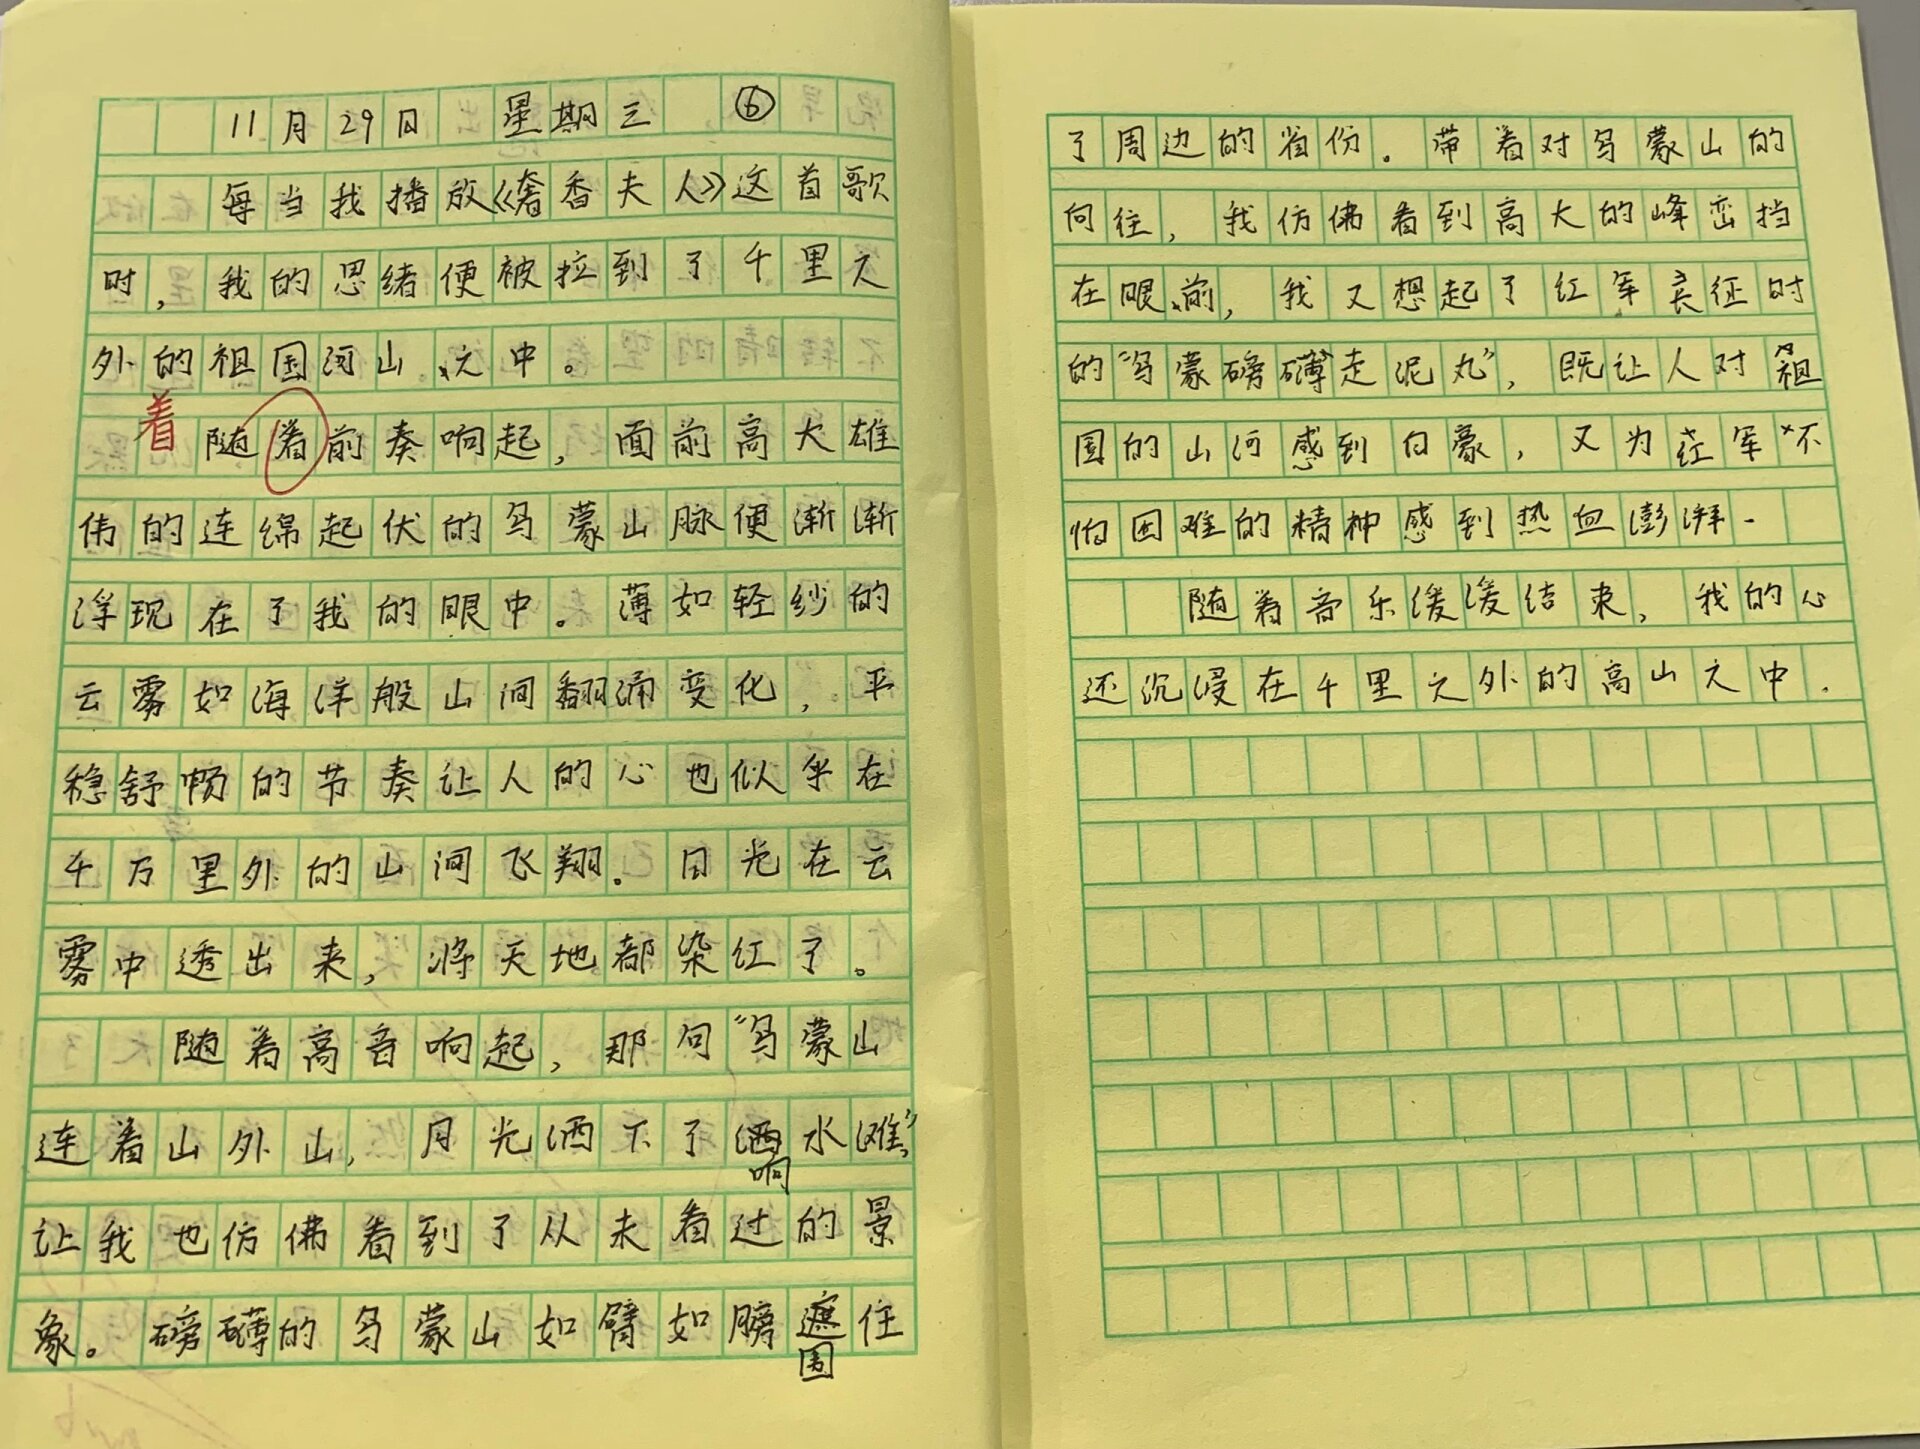 11月29日 星期三 ⑥
每当我播放《奢香夫人》这首歌
时，我的思绪便被拉到了千里之
外的祖国河山之中。
着
随着前奏响起，面前高大雄
伟的连绵起伏的乌蒙山脉便渐渐
浮现在了我的眼中。薄如轻纱的
云雾如海洋般山间翻涌变化，平
稳舒畅的节奏让人的心也似乎在
千万里外的山间飞翔。日光在云
雾中透出来，将天地都染红了。
随着高音响起，那句“乌蒙山
连着山外山，月光洒下了洒水滩”，
响
让我也仿佛看到了从未看过的景
象。磅礴的乌蒙山如臂如膀遮住
围
了周边的省份。带着对乌蒙山的
向往，我仿佛看到高大的峰峦挡
在眼前，我又想起了红军长征时
的“乌蒙磅礴走泥丸”，既让人对祖
国的山河感到自豪，又为红军不
怕困难的精神感到热血澎湃.
随着音乐缓缓结束，我的心
还沉浸在千里之外的高山之中.